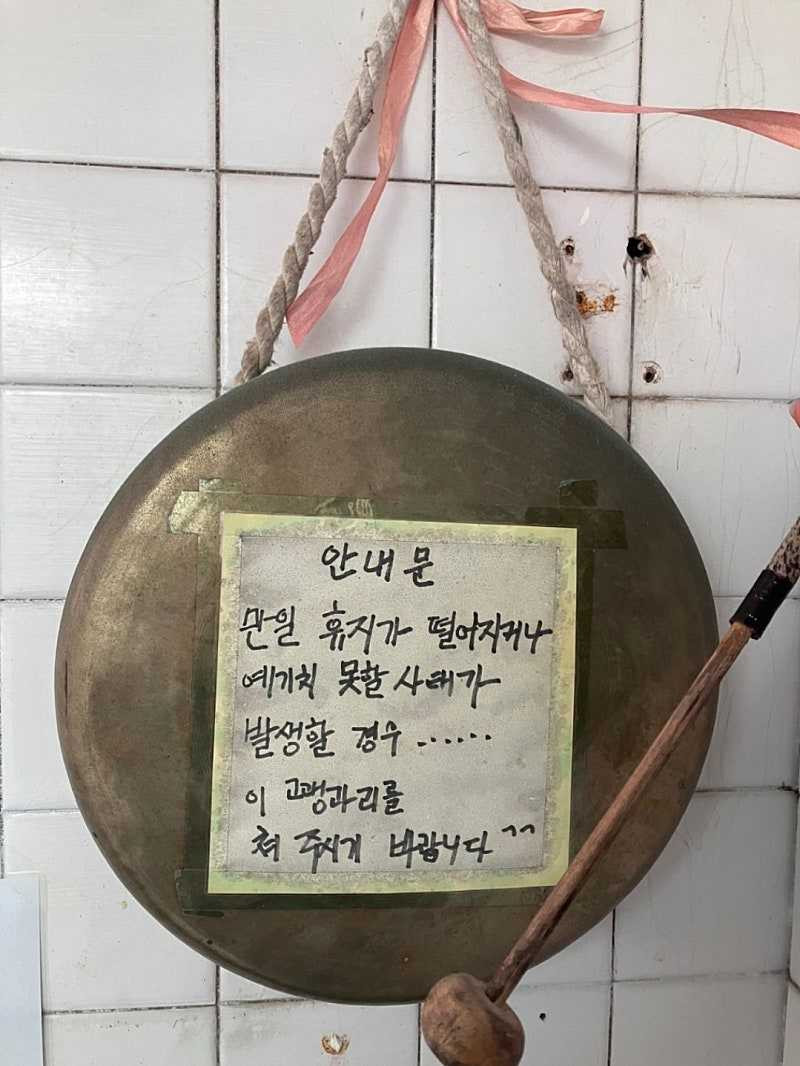 안내문
만일 휴지가 떨어지거나
예기치 못할 사태가
발생할 경우 ......
이 꽹과리를
쳐 주시기 바랍니다 ^^